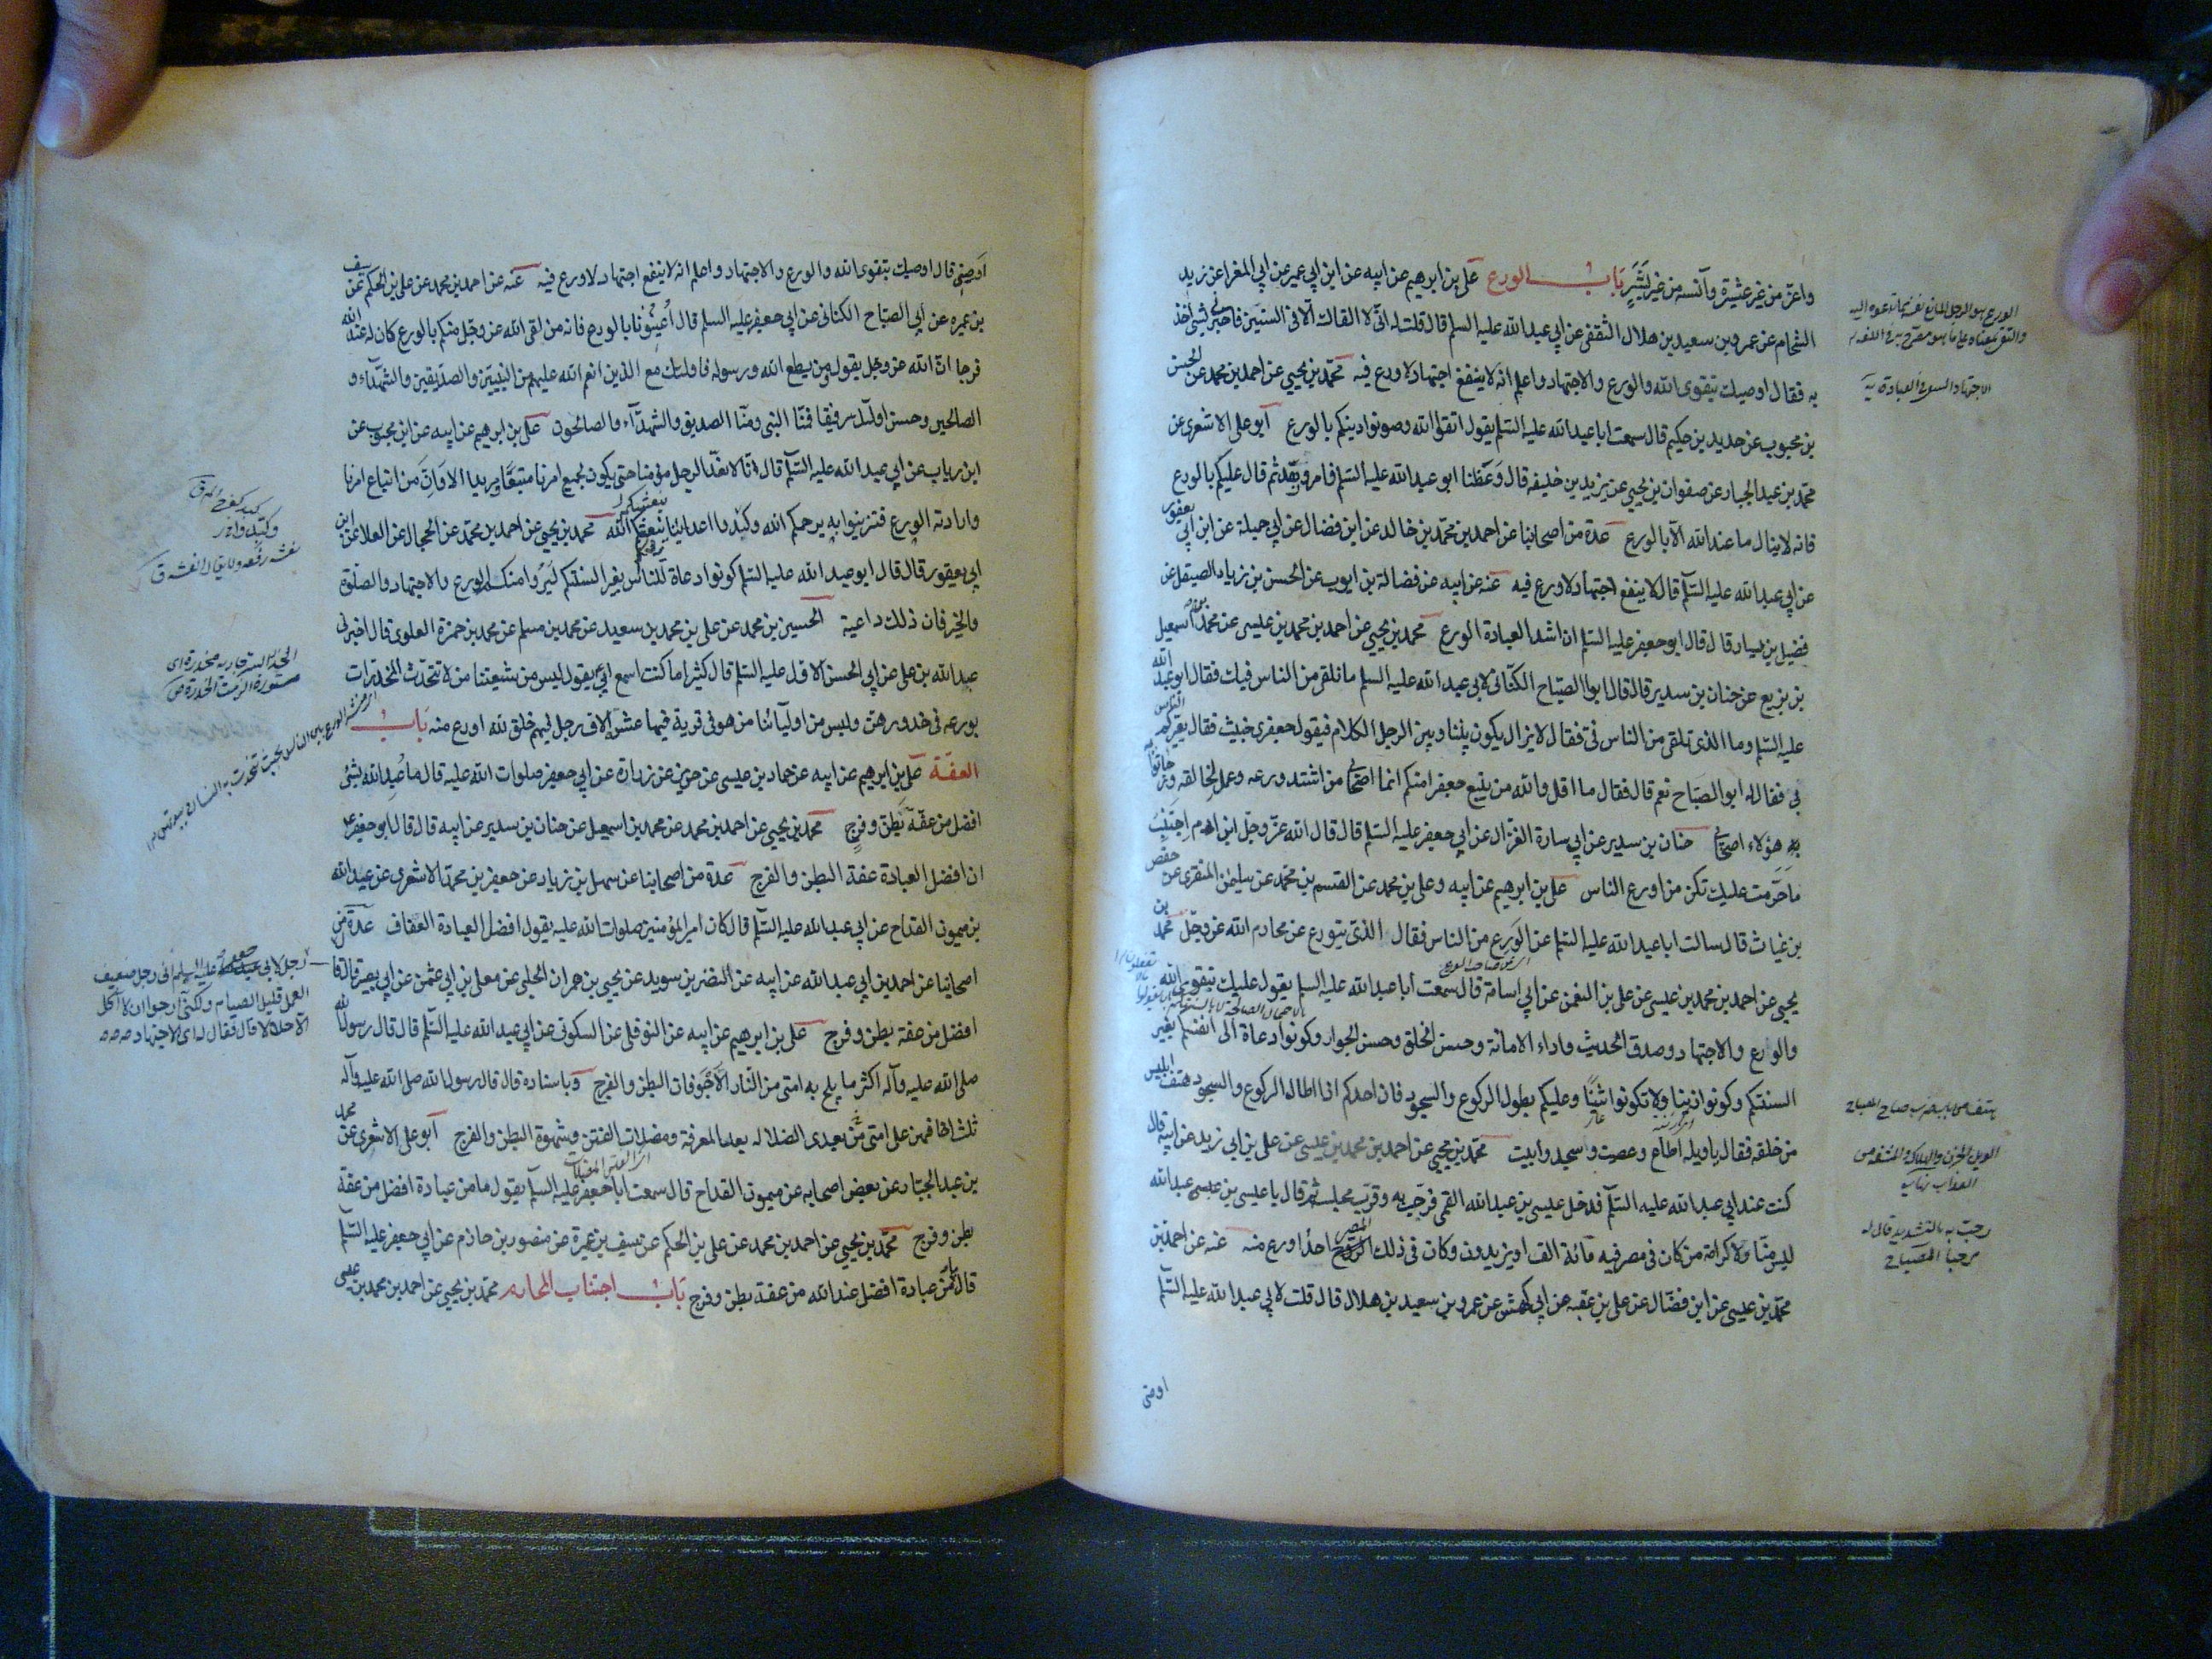 واعزّ من غير عشيرة وآنسه من غير بشر باب الورع علي بن ابرهيم عن ابيه عن ابن ابي عمير عن ابي المغرا عن زيد
الشحام عن عمرو بن سعيد بن هلال الثقفي عن ابي عبد الله عليه السلم قال قلت له انّي لا القاك الّا في السنين فاخبرني بشيء آخذ
به فقال اوصيك بتقوى الله والورع والاجتهاد واعلم انه لا ينفع اجتهاد لا ورع فيه محمّد بن يحيي عن احمد بن محمد عن الحسن
بن محبوب عن حديد بن حكيم قال سمعت ابا عبد الله عليه السّلم يقول اتقوا الله وصونوا دينكم بالورع ابو علي الاشعري عن
محمّد بن عبد الجبار عن صفوان بن يحيي عن يزيد بن خليفه قال وَعَظنا ابو عبد الله عليه السّلم فامر وزهّد ثم قال عليكم بالورع
فانه لا ينال ما عند الله الّا بالورع عدة من اصحابنا عن احمد بن محمّد بن خالد عن ابن فضال عن ابي جميلة عن ابن ابي يعفور
عن ابي عبد الله عليه السّلم قال لا ينفع اجتهاد لا ورع فيه عنه عن ابيه عن فضالة بن ايوب عن الحسن بن زياد الصيقل عن
فضيل بن يسار قال قال ابو جعفر عليه السّلم ان اشد العبادة الورع محمد بن يحيي عن احمد بن محمد بن عيسى عن محمد بن اسمعيل
بن بزيع عن حنان بن سدير قال قال ابو الصبّاح الكنّاني لابي عبد الله عليه السلم ما نلقى من الناس فيك فقال ابو عبد الله
عليه السّلم وما الذي تلقى من الناس فيّ فقال لا يزال يكون بيننا وبين الرجل الكلام فيقول جعفري خبيث فقال يعيّركم الناس
بي فقال له ابو الصبّاح نعم قال فقال ما اقل والله من يتبع جعفرا منكم انما اصحابي من اشتد ورعه وعمل لخالقه ورجا ثوابه
هؤلاء اصحابي حنان بن سدير عن ابي سارة الغزّال عن ابي جعفر عليه السّلم قال قال الله عزّ وجلّ ابن ادم اجتنب
ما حَرّمت عليك تكن من اورع الناس علي بن ابرهيم عن ابيه وعلي بن محمد عن القسم بن محمّد عن سليمن المنقري عن حفص
بن غياث قال سالت ابا عبد الله عليه السّلم عن الورع من الناس فقال الذي يتورع عن محارم الله عز وجلّ محمد بن
يحيي عن احمد بن محمد بن عيسى عن علي بن النعمن عن ابي اسامة قال سمعت أبا عبد الله عليه السلم يقول عليك بتقوى الله
والورع والاجتهاد وصدق الحديث واداء الامانة وحسن الخلق وحسن الجوار وكونوا دعاة الى انفسكم بغير
السنتكم وكونوا زينا ولا تكونوا شينًا وعليكم بطول الركوع والسجود فان احدكم اذا اطال الركوع والسجود هتف ابليس
من خلفه فقال يا ويله اطاع وعصيت وسجد وابيت محمّد بن يحيي عن احمد بن محمد بن عيسى عن علي بن ابي زيد عن ابيه قال
كنت عند ابي عبد الله عليه السّلم فدخل عيسى بن عبد الله القمي فرحّب به وقرّب مجلسه ثم قال يا عيسى بن عبد الله
ليس منّا ولا كرامة من كان في مصر فيه مائة الف او يزيدون وكان في ذلك المصر احدٌ اورع منه عنه عن احمد بن
محمّد بن عيسى عن ابن فضّال عن علي بن عقبه عن ابي كهمش عن عمرو بن سعيد بن هلال قال قلت لابي عبد الله عليه السّلم
اوصني
هتف من باب ضرب صاح المصباح
رحّب به بالتشديد قال له
مرحبا المصباح
اوصني قال اوصيك بتقوى الله والورع والاجتهاد واعلم انه لا ينفع اجتهاد لا ورع فيه عنه عن احمد بن محمد عن علي بن الحكم عن سيف
بن عميره عن ابي الصبّاح الكناني عن ابي جعفر عليه السلم قال أعينونا بالورع فانه من لقى الله عز وجّل منكم بالورع كان له عند الله
فرجا انّ الله عز وجل يقول من يطع الله ورسوله فاولئك مع الذين انعم الله عليهم من النبيين والصدّيقين والشهدّاء و
الصالحين وحسن اولئك رفيقا فمنّا النبي ومنّا الصديق والشهدّآء والصالحون علي بن ابرهيم عن ابيه عن ابن محبوب عن
ابن رياب عن ابي عبد الله عليه السّلم قال انّا لا نعدّ الرجل مؤمنا حتى يكون لجميع امرنا متبعًا مريدا الا وانّ من اتباع امرنا
وارادته الورع فتزينوا به يرحمكم الله وكبّدوا اعدائنا ينعشكم الله محمد بن يحيي عن احمد بن محمّد عن الحجال عن العلا عن ابن
ابي يعفور قال قال ابو عبد الله عليه السّلم كونوا دعاة للناس بغير السنتكم ليَروا منكم الورع والاجتهاد والصلوة
والخير فان ذلك داعية الحسين بن محمد عن علي بن محمد بن سعيد عن محمد بن مسلم عن محمد بن حمزة العلوي قال اخبرني
عبيد الله بن علي عن ابي الحسن الاول عليه السّلم قال كثيرا ما كنت اسمع ابي يقول ليس من شيعتنا من لا تتحدّث المخدّرات
بورعه في خدورهن وليس من اوليآئنا من هو في قرية فيها عشرة الاف رجل فيهم خلق لله اورع منه باب
العفّة علي بن ابرهيم عن ابيه عن حماد بن عيسى عن حريز عن زرارة عن ابي جعفر صلوات الله عليه قال ما عُبد الله بشئ
افضل من عفّة بطن وفرج محمد بن يحيي عن احمد بن محمد عن محمد بن اسمعيل عن حنان بن سدير عن ابيه قال قال ابو جعفر ع
ان افضل العبادة عفة البطن والفرج عدة من اصحابنا عن سهل بن زياد عن جعفر بن محمّد الاشعري عن عبد الله
بن ميمون القداح عن ابي عبد الله عليه السّلم قال كان أمير المؤمنين صلوات الله عليه يقول افضل العبادة العفاف عدّة من
اصحابنا عن احمد بن ابي عبد الله عن ابيه عن النضر بن سويد عن يحيي بن عمران الحلبي عن معلى بن ابي عثمن عن ابي بصير قال قال
افضل من عفة بطن وفرج علي بن ابرهيم عن ابيه عن النوفلي عن السكوني عن ابي عبد الله عليه السّلم قال قال رسول الله
صلى الله عليه وآله اكثر ما يلج به امتي من النّار الاجوفان البطن والفرج وباسناده قال قال رسول الله صلى الله عليه وآله
ثلث اخافهن على امتي من بعدي الضلالة بعد المعرفة ومضلات الفتن وشهوة البطن والفرج ابو علي الاشعري عن محمد
بن عبد الجبّار عن بعض اصحابه عن ميمون القداح قال سمعت ابا جعفر عليه السلم يقول ما من عبادة افضل من عفّة
بطن وفرج محمّد بن يحيي عن احمد بن محمد عن علي بن الحكم عن سيف بن عميرة عن منصور بن حازم عن ابي جعفر عليه السّلم
قال ما من عبادة افضل عند الله من عفة بطن وفرج باب اجتناب المحارم محمّد بن يحيي عن احمد بن محمد بن عيسى
رجل لابي جعفر عليه السلم اني رجل ضعيف
العمل قليل الصيام ولكنّي أرجو ان لا آكل
الّا حلالا قال فقال له اي الاجتهاد